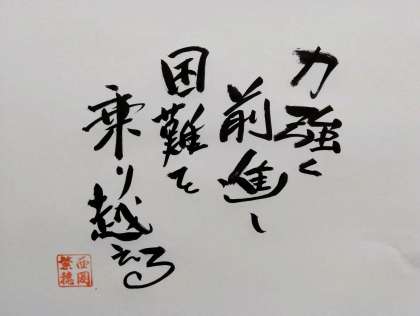 力強く
前進し
困難を
乗り越える
西園
繁穂